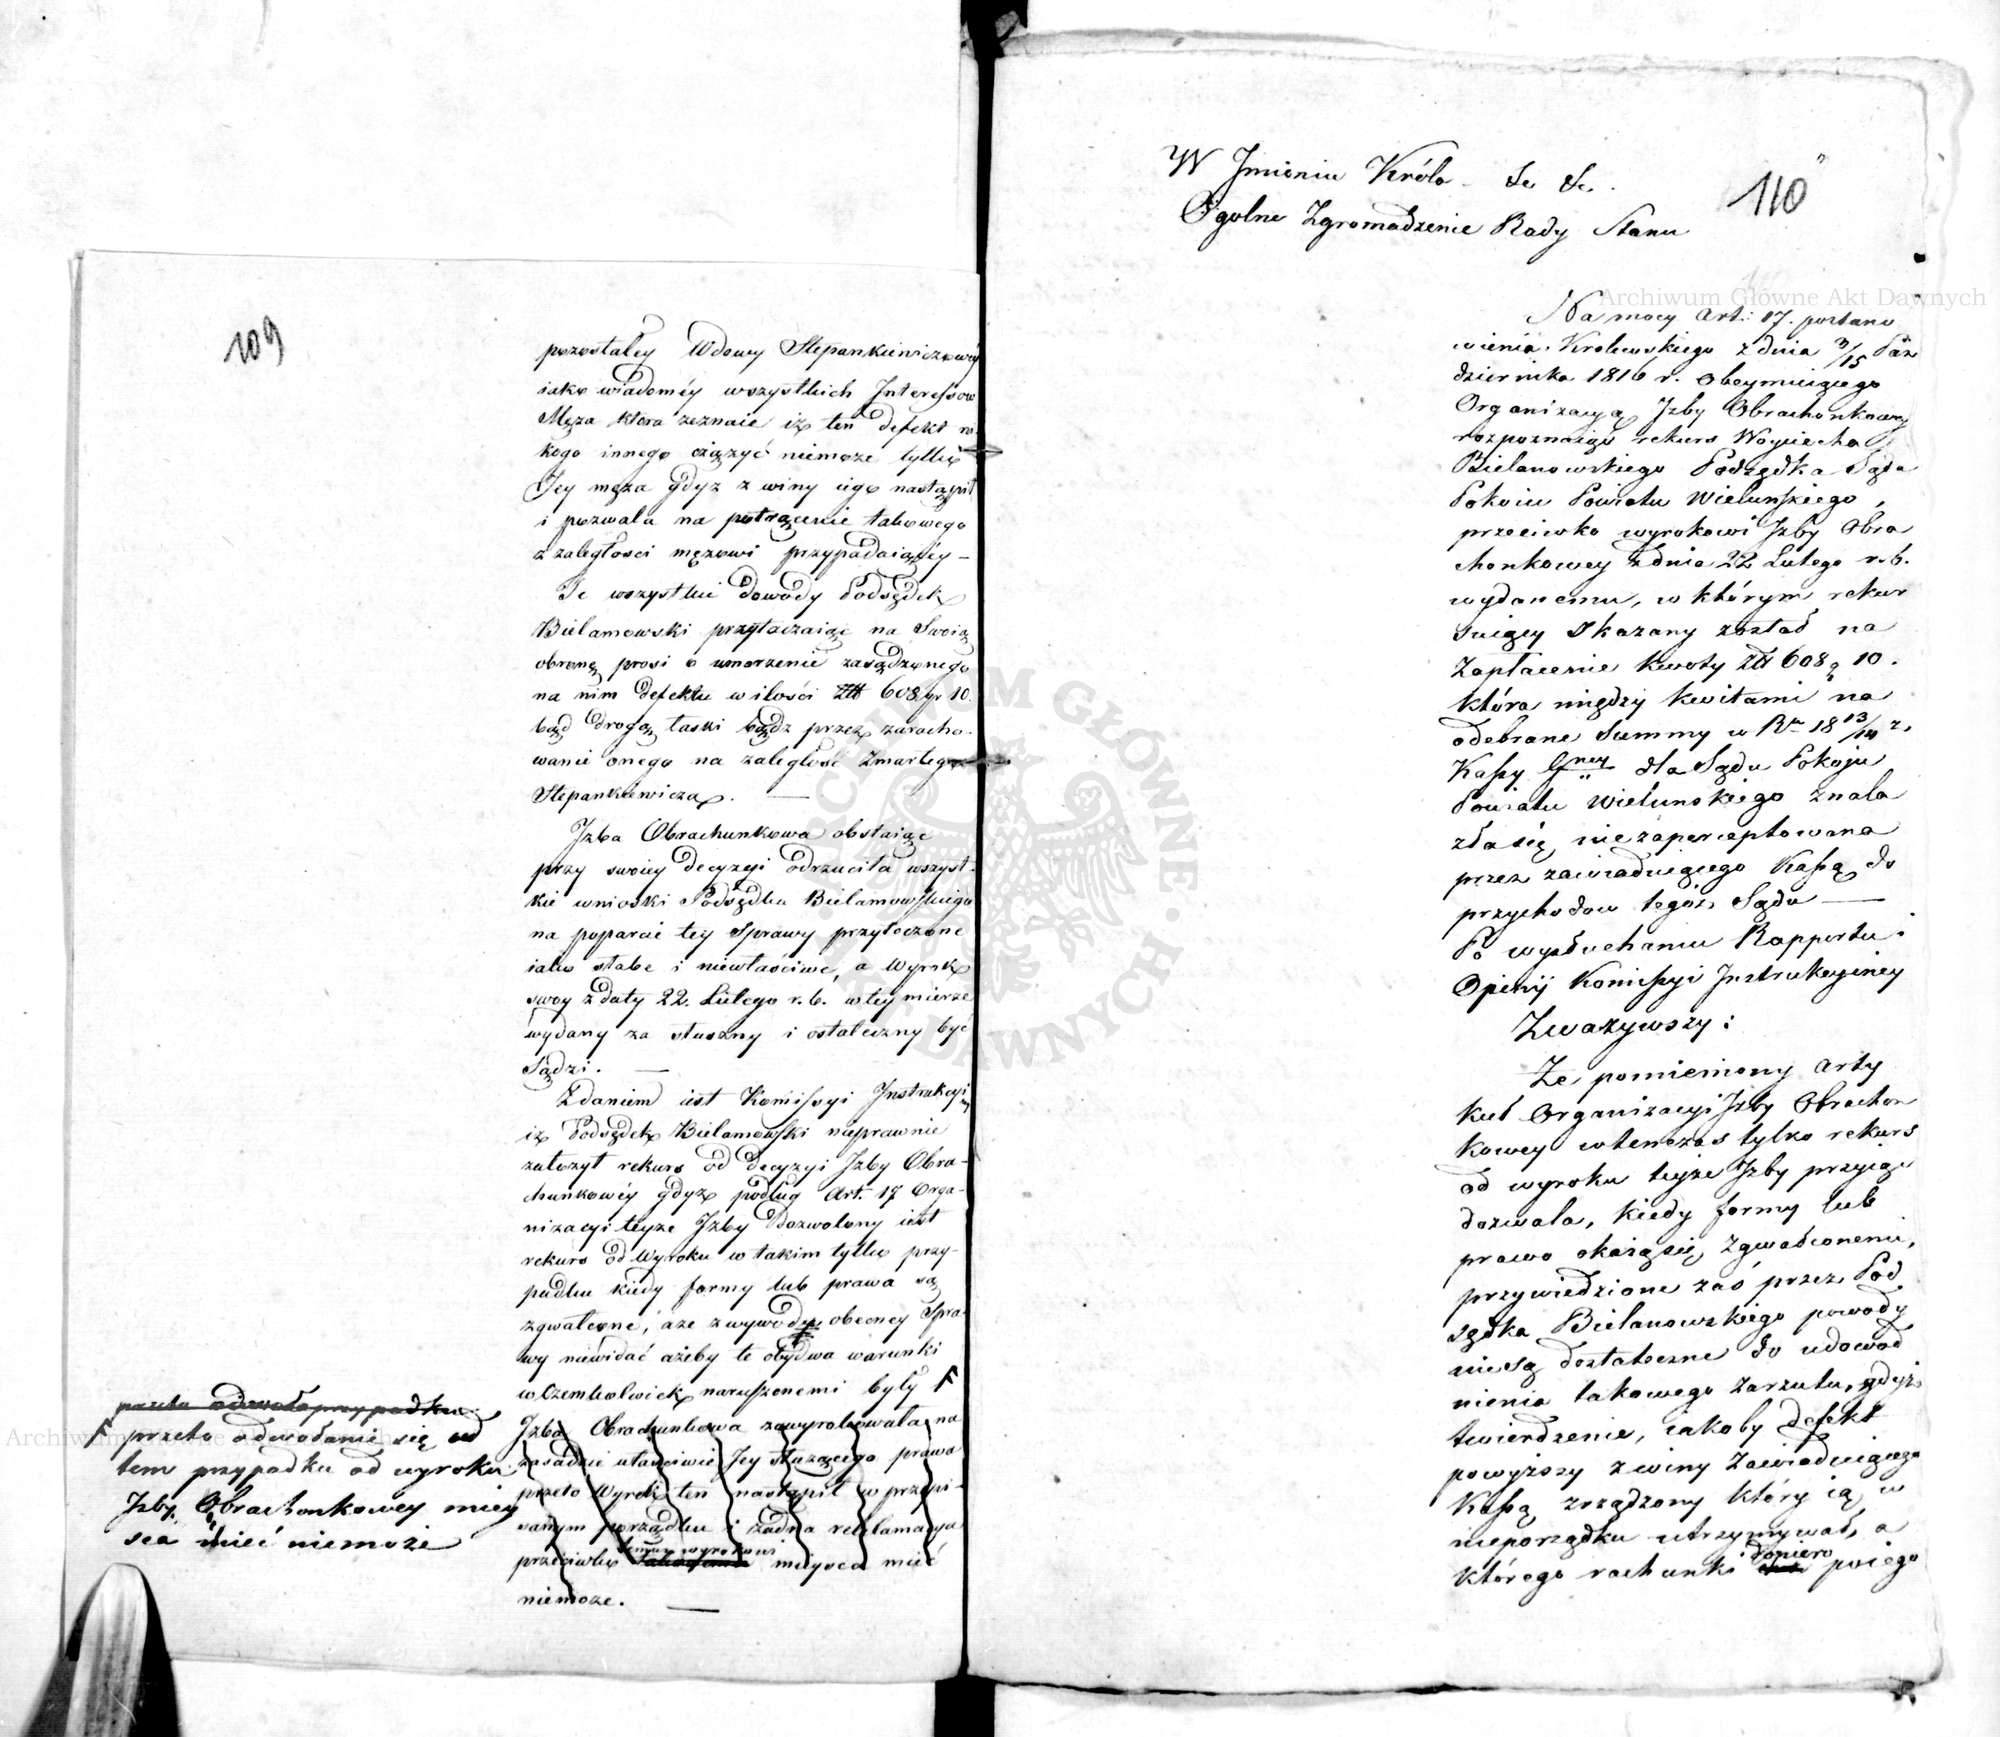 109
pozostałey Wdowy Stepankiewiczowéy
iako wiadoméy wszystkich Interessow
Męża która zeznaie iż ten defekt ni-
kogo innego ciążyć niemoże tylko
Jey męża gdyż z winy iego nastąpił
i pozwala na potrącenie takowego
z zaległosci mężowi przypadaiącéy –
Te wszystkie dowody Podsędek
Bielamowski przytaczaiąc na Swoią
obronę prosi o umorzenie zasądzonego
na nim defektu w ilości Złł 608 gr 10.
bąd drogą łaski bądz przez zaracho-
wanie onego na zaległość Zmarłego
Stepankiewicza. —
Izba Obrachunkowa obstaiąc
przy swoiey decyzyi odrzuciła wszyst-
kie wnioski Podsędka Bielamowskiego
na poparcie tey Sprawy przytoczone
iako słabe i niewłaściwe, a Wyrok
swoy z daty 22. Lutego r. b. w tey mierze
wydany za słuszny i ostateczny być
Sądzi. —
Zdaniem iest Komissyi Instrukcyi
iż Podsędek Bielamowski nieprawnie
założył rekurs od decyzyi Izby Obra-
chunkowéy gdyż podług Art. 17 Orga-
nizacyi teyże Izby Dozwolony iest
rekurs od Wyroku w takim tylko przy-
padku kiedy formy lub prawa są
zgwałcone, a że z wywodu obecney Spra-
wy niewidać ażeby te obydwa warunki
w Czemkolwiek naruszonemi były F
Izba Obrachunkowa zawyrokowała na
zasadzie właściwie Jey służącego prawa
przeto Wyrok ten nastąpił w przepi-
sanym porządku i żadna reklamacya
przeciwko temuż wyrokowi mieysca mieć
niemoże. —
F przeto odwołanie się od
tem przypadku od wyroku
Izby Obrachonkowey miey
sca mieć niemoże
110
W Jmieniu Króla - &c &c.
Ogolne Zgromadzenie Rady Stanu
Na mocy Art: 17. postano
wienia Krolewskiego z dnia 3/15 Paz
dziernika 1816 r. obeymuiącego
Organizacyą Izby Obrachonkowey
rozpoznaiąc rekurs Woyciecha
Bielanowskiego Podsędka Sądu
Pokoiu Powiatu Wieluńskiego,
przeciwko wyrokowi Izby Obra
chonkowey z dnia 22 Lutego r. b.
wydanemu, w którym rekur
suiący skazany został na
Zapłacenie kwoty Złł 608 g 10.
która między kwitami na
odebrane Summy w Rr 1813/14 z,
Kassy Gney dla Sądu Pokoju
Powiatu Wielunskiego znala
zła się niezaperceptowana
przez zawiaduiącego Kassą do
przychodow tegoż Sądu —
Po wysłuchaniu Rapportu i
Opinij Komissyi Instrukcyiney
Zwazywszy:
Że pomieniony arty
kuł Organizacyi Izby Obrachon
kowey wtenczas tylko rekurs
od wyroku teyże Izby przyiąc
dozwala, kiedy formy lub
prawo okażą się zgwałconemi,
przywiedzione zaś przez Pod
sędka Bielanowskiego powody
nie są dostateczne do udowod
nienia takowego zarzutu, gdyż
twierdzenie, iakoby defekt
powyższy z winy Zawiaduiącego
Kassą zrządzony który ią w
nieporządku utrzymywał, a
którego rachunki dopiero po iego